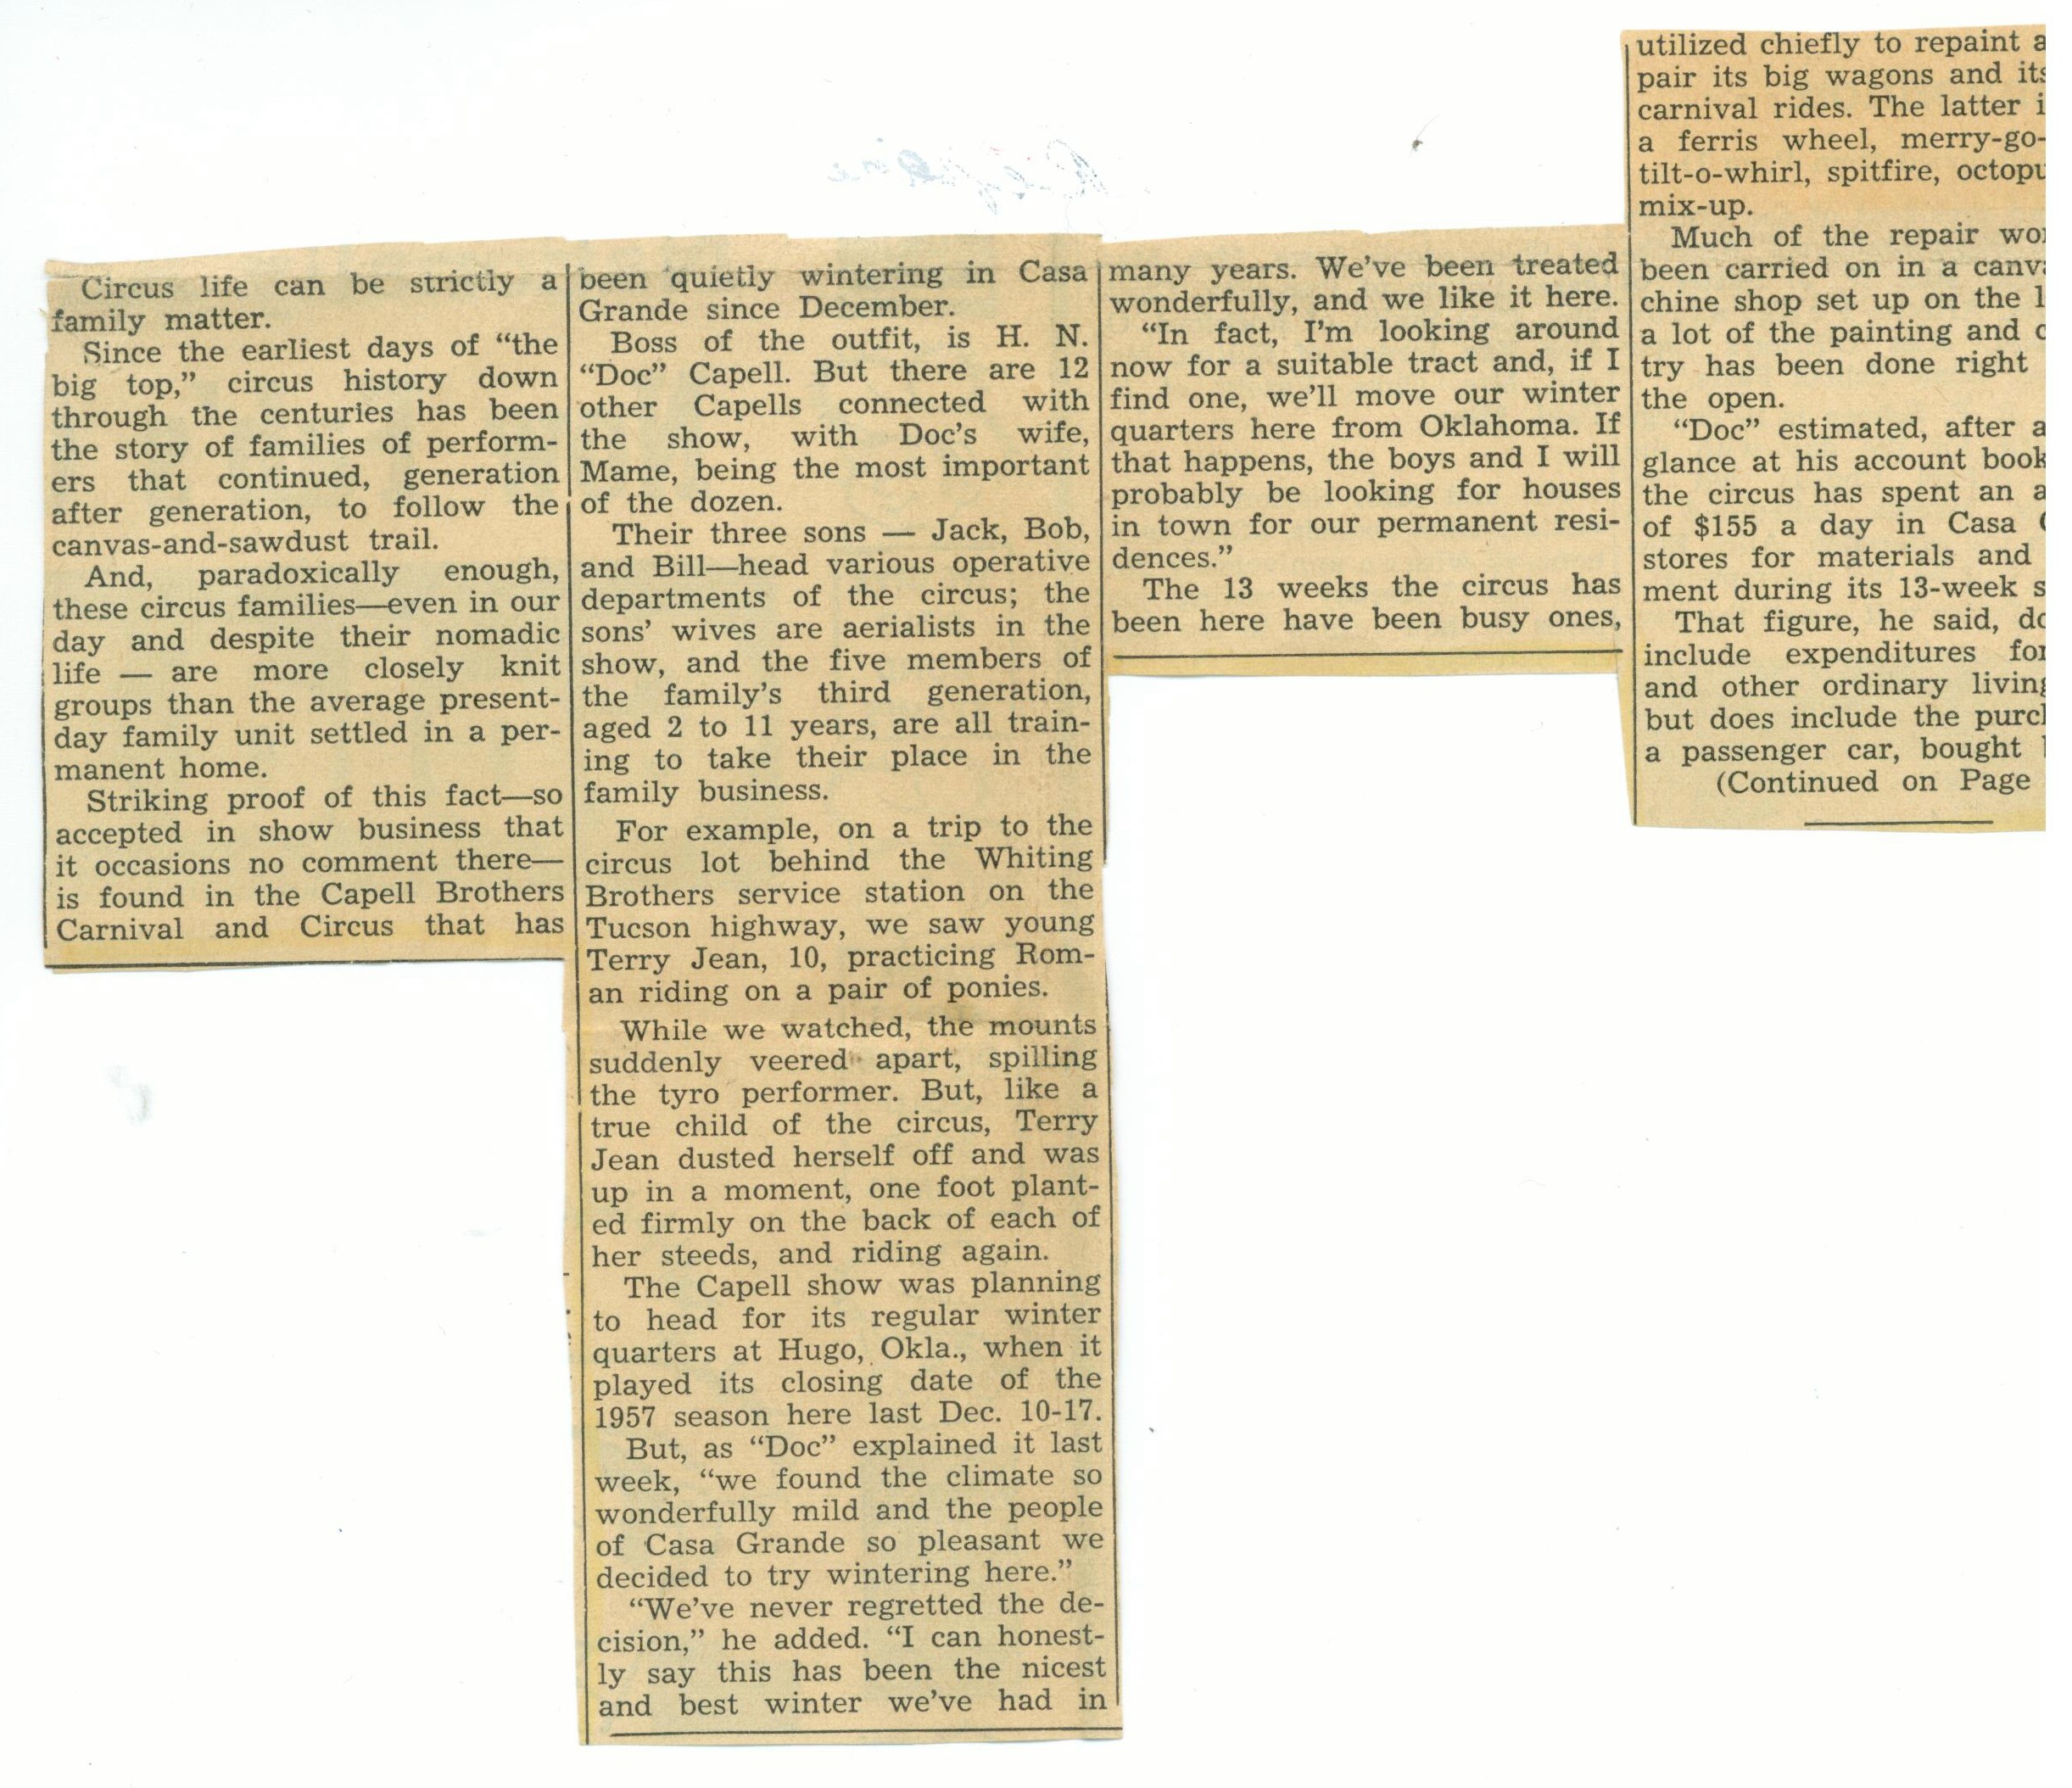 Circus life can be strictly a
family matter.
Since the earliest days of “the
big top,” circus history down
through the centuries has been
the story of families of perform-
ers that continued, generation
after generation, to follow the
canvas-and-sawdust trail.
And, paradoxically enough,
these circus families—even in our
day and despite their nomadic
life — are more closely knit
groups than the average present-
day family unit settled in a per-
manent home.
Striking proof of this fact—so
accepted in show business that
it occasions no comment there—
is found in the Capell Brothers
Carnival and Circus that has
been quietly wintering in Casa
Grande since December.
Boss of the outfit, is H. N.
“Doc” Capell. But there are 12
other Capells connected with
the show, with Doc’s wife,
Mame, being the most important
of the dozen.
Their three sons — Jack, Bob,
and Bill—head various operative
departments of the circus; the
sons’ wives are aerialists in the
show, and the five members of
the family’s third generation,
aged 2 to 11 years, are all train-
ing to take their place in the
family business.
For example, on a trip to the
circus lot behind the Whiting
Brothers service station on the
Tucson highway, we saw young
Terry Jean, 10, practicing Rom-
an riding on a pair of ponies.
While we watched, the mounts
suddenly veered apart, spilling
the tyro performer. But, like a
true child of the circus, Terry
Jean dusted herself off and was
up in a moment, one foot plant-
ed firmly on the back of each of
her steeds, and riding again.
The Capell show was planning
to head for its regular winter
quarters at Hugo, Okla., when it
played its closing date of the
1957 season here last Dec. 10-17.
But, as “Doc” explained it last
week, “we found the climate so
wonderfully mild and the people
of Casa Grande so pleasant we
decided to try wintering here.”
“We’ve never regretted the de-
cision,” he added. “I can honest-
ly say this has been the nicest
and best winter we’ve had in
many years. We’ve been treated
wonderfully, and we like it here.
“In fact, I’m looking around
now for a suitable tract and, if I
find one, we’ll move our winter
quarters here from Oklahoma. If
that happens, the boys and I will
probably be looking for houses
in town for our permanent resi-
dences.”
The 13 weeks the circus has
been here have been busy ones,
utilized chiefly to repaint
pair its big wagons and its
carnival rides. The latter
a ferris wheel, merry-go-
tilt-o-whirl, spitfire,
mix-up.
Much of the repair
been carried on in a
chine shop set up on the
a lot of the painting and
try has been done right
the open.
“Doc” estimated, after a
glance at his account
the circus has spent an
of $155 a day in Casa
stores for materials and
ment during its 13-week
That figure, he said,
include expenditures for
and other ordinary living
but does include the
a passenger car, bought
(Continued on Page